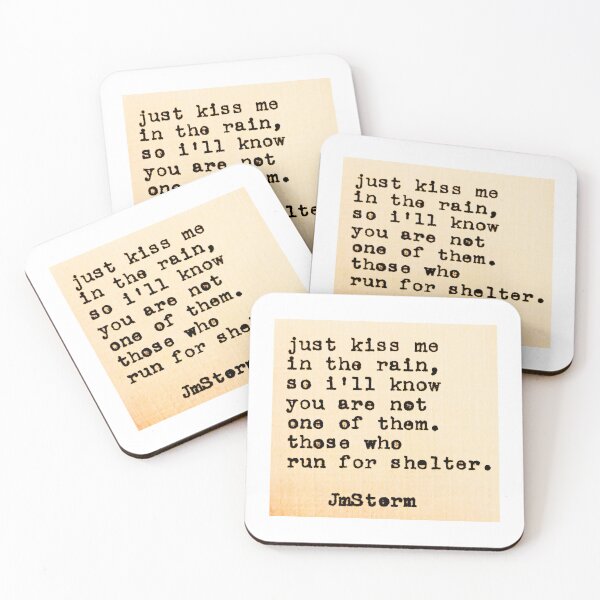 just kiss me
in the rain,
so i'll know
you are not
one of them.
just kiss me
in the rain,
so i'll know
you are not
one of them.
those who
run for shelter.
just kiss me
in the rain,
so i'll know
you are not
one of them.
those who
run for
JmStorm
just kiss me
in the rain,
so i'll know
you are not
one of them.
those who
run for shelter.
JmStorm